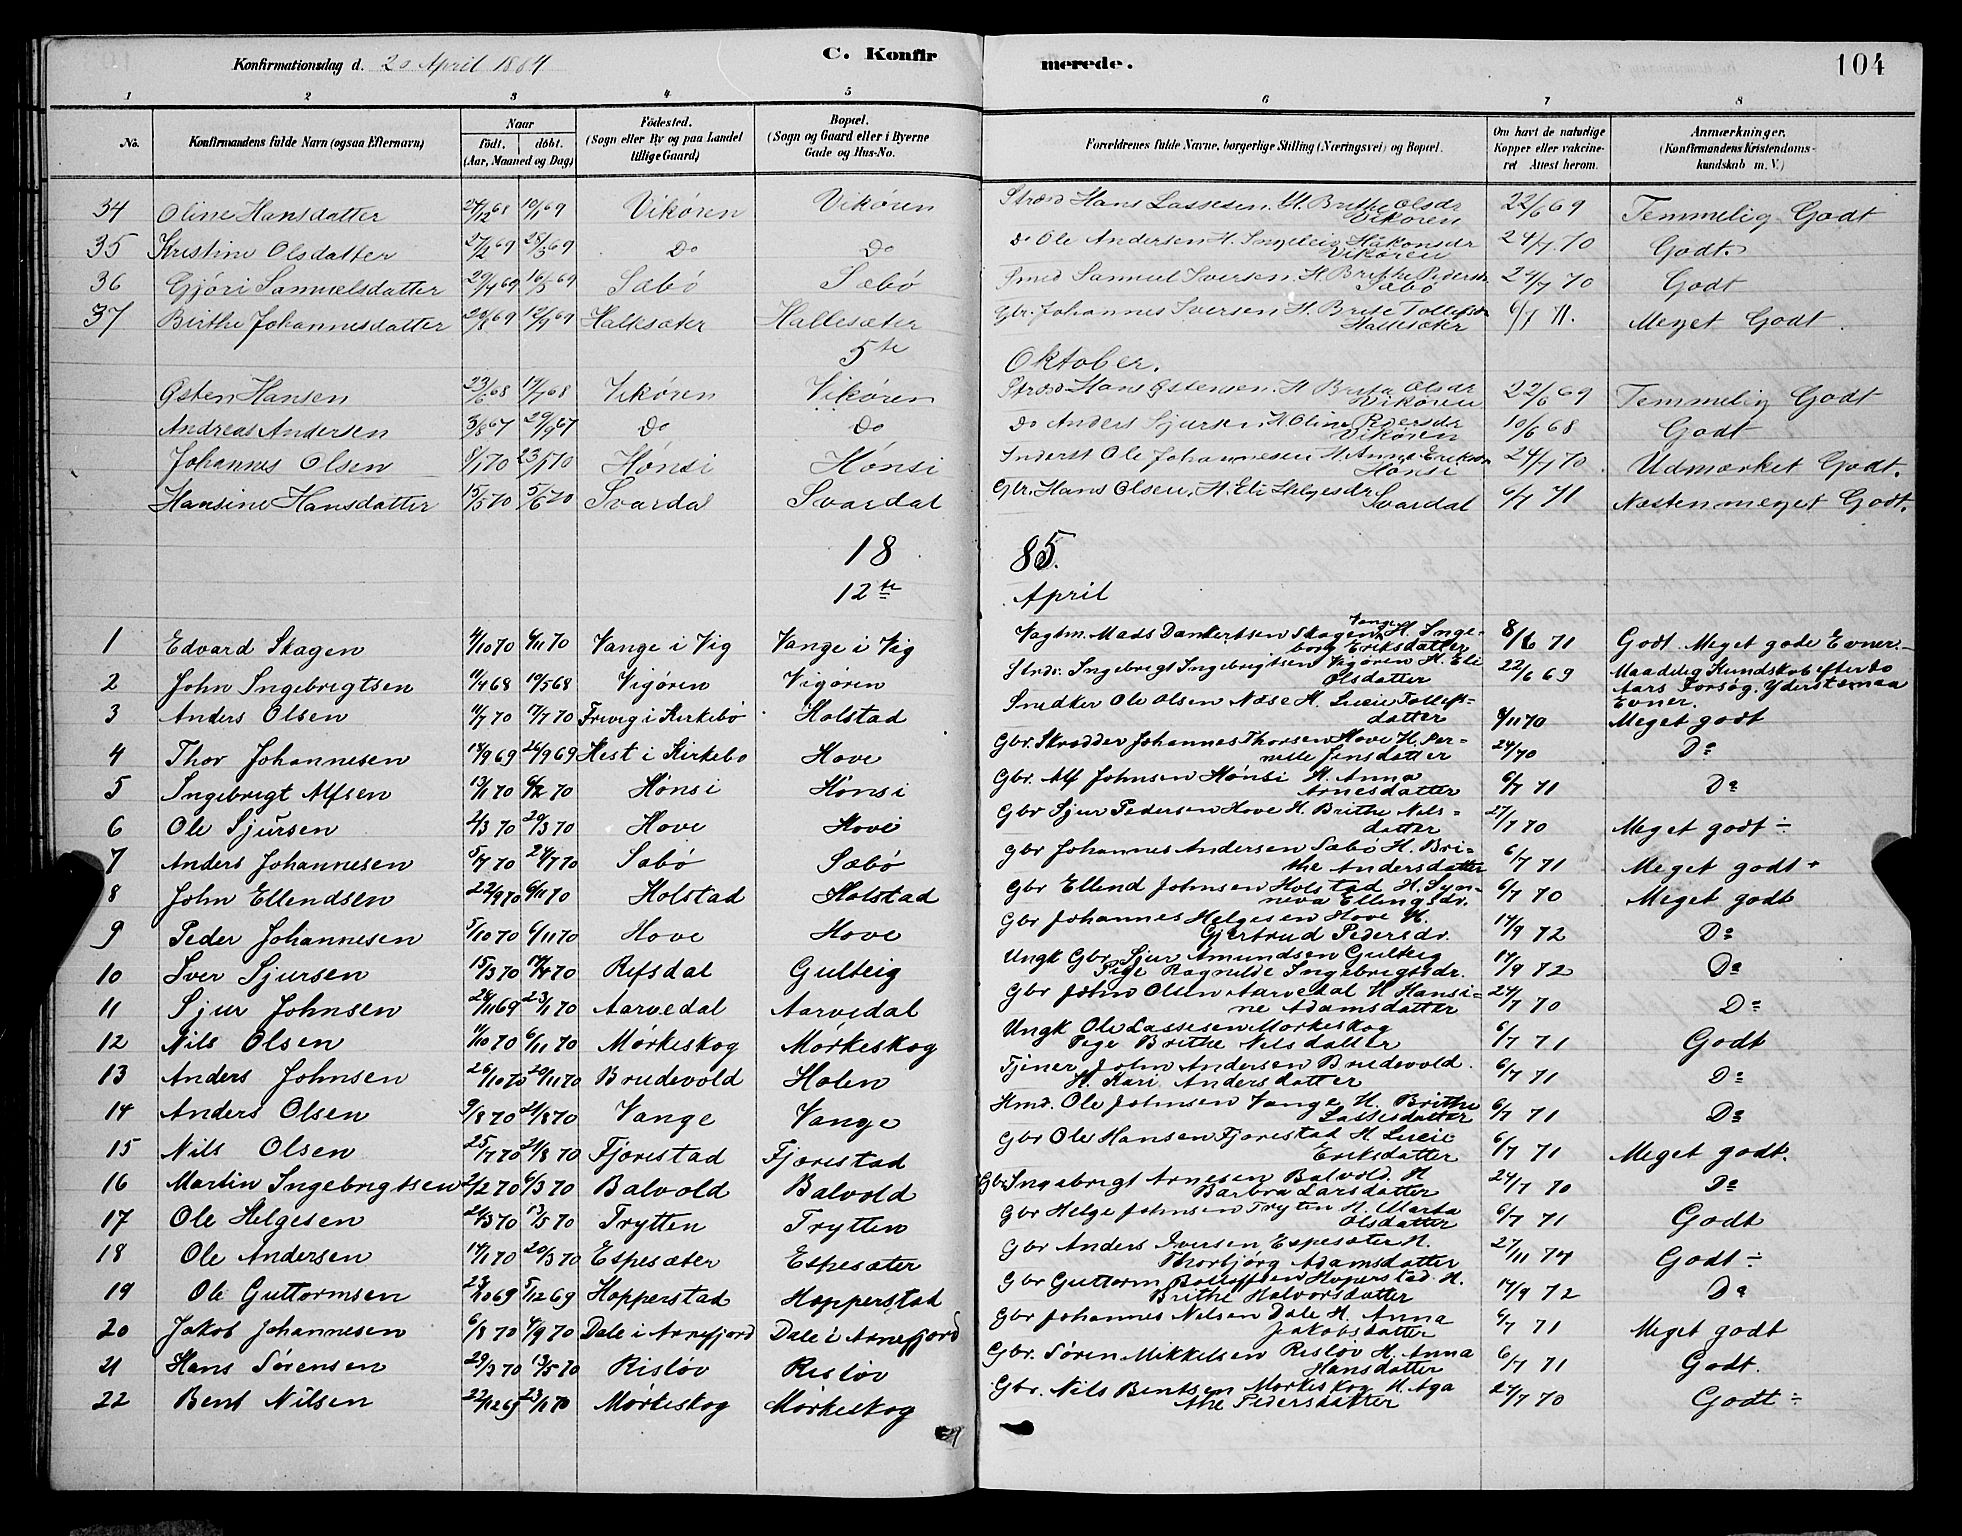 Konfirmationsdag d. 20 April 1884
C. Konfir
merede.
104
1 2 3 4 5 6 7 8
No.
Konfirmandens fulde Navn (ogsaa Efternavn)
Naar
født. døbt.
(Aar, Maaned og Dag)
Fødested.
(Sogn eller By og paa Landet
tillige Gaard)
Bopæl.
(Sogn og Gaard eller i Byerne
Gade og Hus-No.
Forældrenes fulde Navne, borgerlige Stilling (Næringsvei) og Bopæl.
Om havt de naturlige
Kopper eller vakcine-
ret Attest herom.
Anmærkninger.
(Konfirmandens Kristendoms-
kundskab m. V.)
34 Oline Hansdatter 24/12 68 10/1 69 Vikøren Vikøren Strds Hans Lassesen. H. Brithe Olsdr Vikøren 22/6 69 Temmelig Godt
35 Kristine Olsdatter 27/2 69 28/3 69 Do Do Do Ole Andersen H. Ingeleiv Håkonsdr Vikøren 24/7 70 Godt.
36 Gjøri Samuelsdatter 29/4 69 16/5 69 Sæbø Sæbø Smed Samuel Iversen H. Brithe Pedersdr Sæbø 24/7 70 Godt
37 Birthe Johannesdatter 20/8 69 12/9 69 Hallesæter Hallesæter Gbr. Johannes Iversen H. Brite Tollefsdr Hallesæter 6/7 71. Meget Godt.
5te Oktober.
Østen Hansen 23/6 68 19/7 68 Vikøren Vikøren Strds Hans Østensen. H Brita Olsdr Vikøren 22/6 69 Temmelig Godt
Andreas Andersen 3/8 67 29/9 67 Do Do Do Anders Sjursen H Oline Pedersdr Vikøren 10/6 68 Godt
Johannes Olsen 8/1 70 23/1 70 Hønsi Hønsi Inderst Ole Johannesen H. Anna Eriksdr Hønsi 24/7 70. Udmærket Godt.
Hansine Hansdatter 15/5 70 5/6 70 Svardal Svardal Gbr. Hans Olsen. H. Eli Helgesdr Svardal 6/7 71 Næsten meget Godt.
18 85.
12te April
1 Edvard Skagen 4/10 70 6/11 70 Vange i Vig Vange i Vig Vagtm. Mads Dankertsen Skagen Vange H. Inge-
borg Eriksdatter 8/6 71 Godt. Meget gode Evner.
2 John Ingebregtsen 11/4 68 19/5 68 Vigøren Vigøren Strds. Ingebregt Ingebrigtsen Vigøren H. Eli
Olsdatter 22/6 69 Maadelig Kundskab efter to
Aars Forsøg. Yderst smaa
Evner.
3 Anders Olsen 11/7 70 17/7 70 Freivig i Kirkebø Holstad Snedker Ole Olsen Næse H. Lucie Tollefs-
datter 8/11 70 Meget godt
4 Thor Johannesen 18/9 69 26/9 69 Hest i Kirkebø Hove Gbr. Skrædder Johannes Thorsen Hove H. Per-
nille Jensdatter 24/70 Do
5 Ingebregt Alfsen 13/1 70 6/2 70 Hønsi Hønsi Gbr. Alf Johnsen Hønsi H. Anna
Arnesdatter 6/7 71 Do
6 Ole Sjursen 2/3 70 20/3 70 Hove Hove Gbr Sjur Pedersen Hove H. Brithe Nils-
datter 27/7 70 Meget godt ÷
7 Anders Johannesen 5/7 70 24/7 70 Sæbø Sæbø Gbr Johannes Andersen Sæbø H. Bri-
the Andersdatter 6/7 71 Meget godt +
8 John Ellendsen 22/9 70 6/11 70 Holstad Holstad Gbr Ellend Johnsen Holstad H. Syn-
neva Ellingsdr. 6/7 70 Meget godt
9 Peder Johannesen 5/10 70 6/11 70 Hove Hove Gbr Johannes Helgesen Hove H.
Gjertrud Pedersdr. 17/9 72 Do
10 Iver Sjursen 15/3 70 17/4 70 Refsdal Gulteig Ungk Gbr. Sjur Amundsen Gulteig
Pige Ragnilde Ingebregtsdr. 17/9 72 Do
11 Sjur Johnsen 26/11 69 23/1 70 Aarvedal Aarvedal Gbr John Olsen Aarvedal H Hansi-
ne Adamsdatter 24/7 70 Do
12 Nils Olsen 11/10 70 6/11 70 Mørkeskog Mørkeskog Ungk Ole Lassesen Mørkeskog
Pige Brithe Nilsdatter 6/7 71 Godt
13 Anders Johnsen 26/10 70 20/11 70 Brudevold Holen Tjener John Andersen Brudevold.
H. Kari Andersdatter 6/7 71 Do
14 Anders Olsen 9/8 70 21/8 70 Vange Vange Hmd. Ole Johnsen Vange H. Brithe
Lassesdatter 6/7 71 Do
15 Nils Olsen 25/7 70 21/8 70 Fjørestad Fjørestad Gbr Ole Hansen Fjørestad H Lucie
Eriksdatter 6/7 71 Meget godt.
16 Martin Ingebregtsen 2/2 70 6/3 70 Balvold Balvold Gbr. Ingebregt Arnesen Balvold. H
Barbra Larsdatter 24/7 70 Do
17 Ole Helgesen 21/3 70 13/5 70 Trytten Trytten Gbr Helge Johnsen Tryten H. Marta
Olsdatter 6/7 71 Godt
18 Ole Andersen 14/1 70 20/3 70 Espesæter Espesæter Gbr Anders Iversen Espesæter H.
Thorbjørg Adamsdatter 27/11 74 Godt ÷
19 Ole Guttormsen 23/10 69 5/12 69 Hopperstad Hopperstad Gbr Guttorm Hoperstad H.
Brithe Halvorsdatter 17/9 72 Do
20 Jakob Johannesen 6/8 70 4/9 70 Dale i Arnefjord Dale i Arnefjord Gbr Johannes Nilsen Dale H. Anna
Jakobsdatter 6/7 71 Meget godt
21 Hans Sørensen 29/3 70 13/5 70 Risløv Risløv Gbr. Søren Mikkelsen Risløv H. Anna
Hansdatter 6/7 71 Godt.
22 Bent Nilsen 22/12 69 23/1 70 Mørkeskog Mørkeskog Gbr. Nils Bentsen Mørkeskog H. Aga
the Pedersdatter 27/7 70 Godt ÷